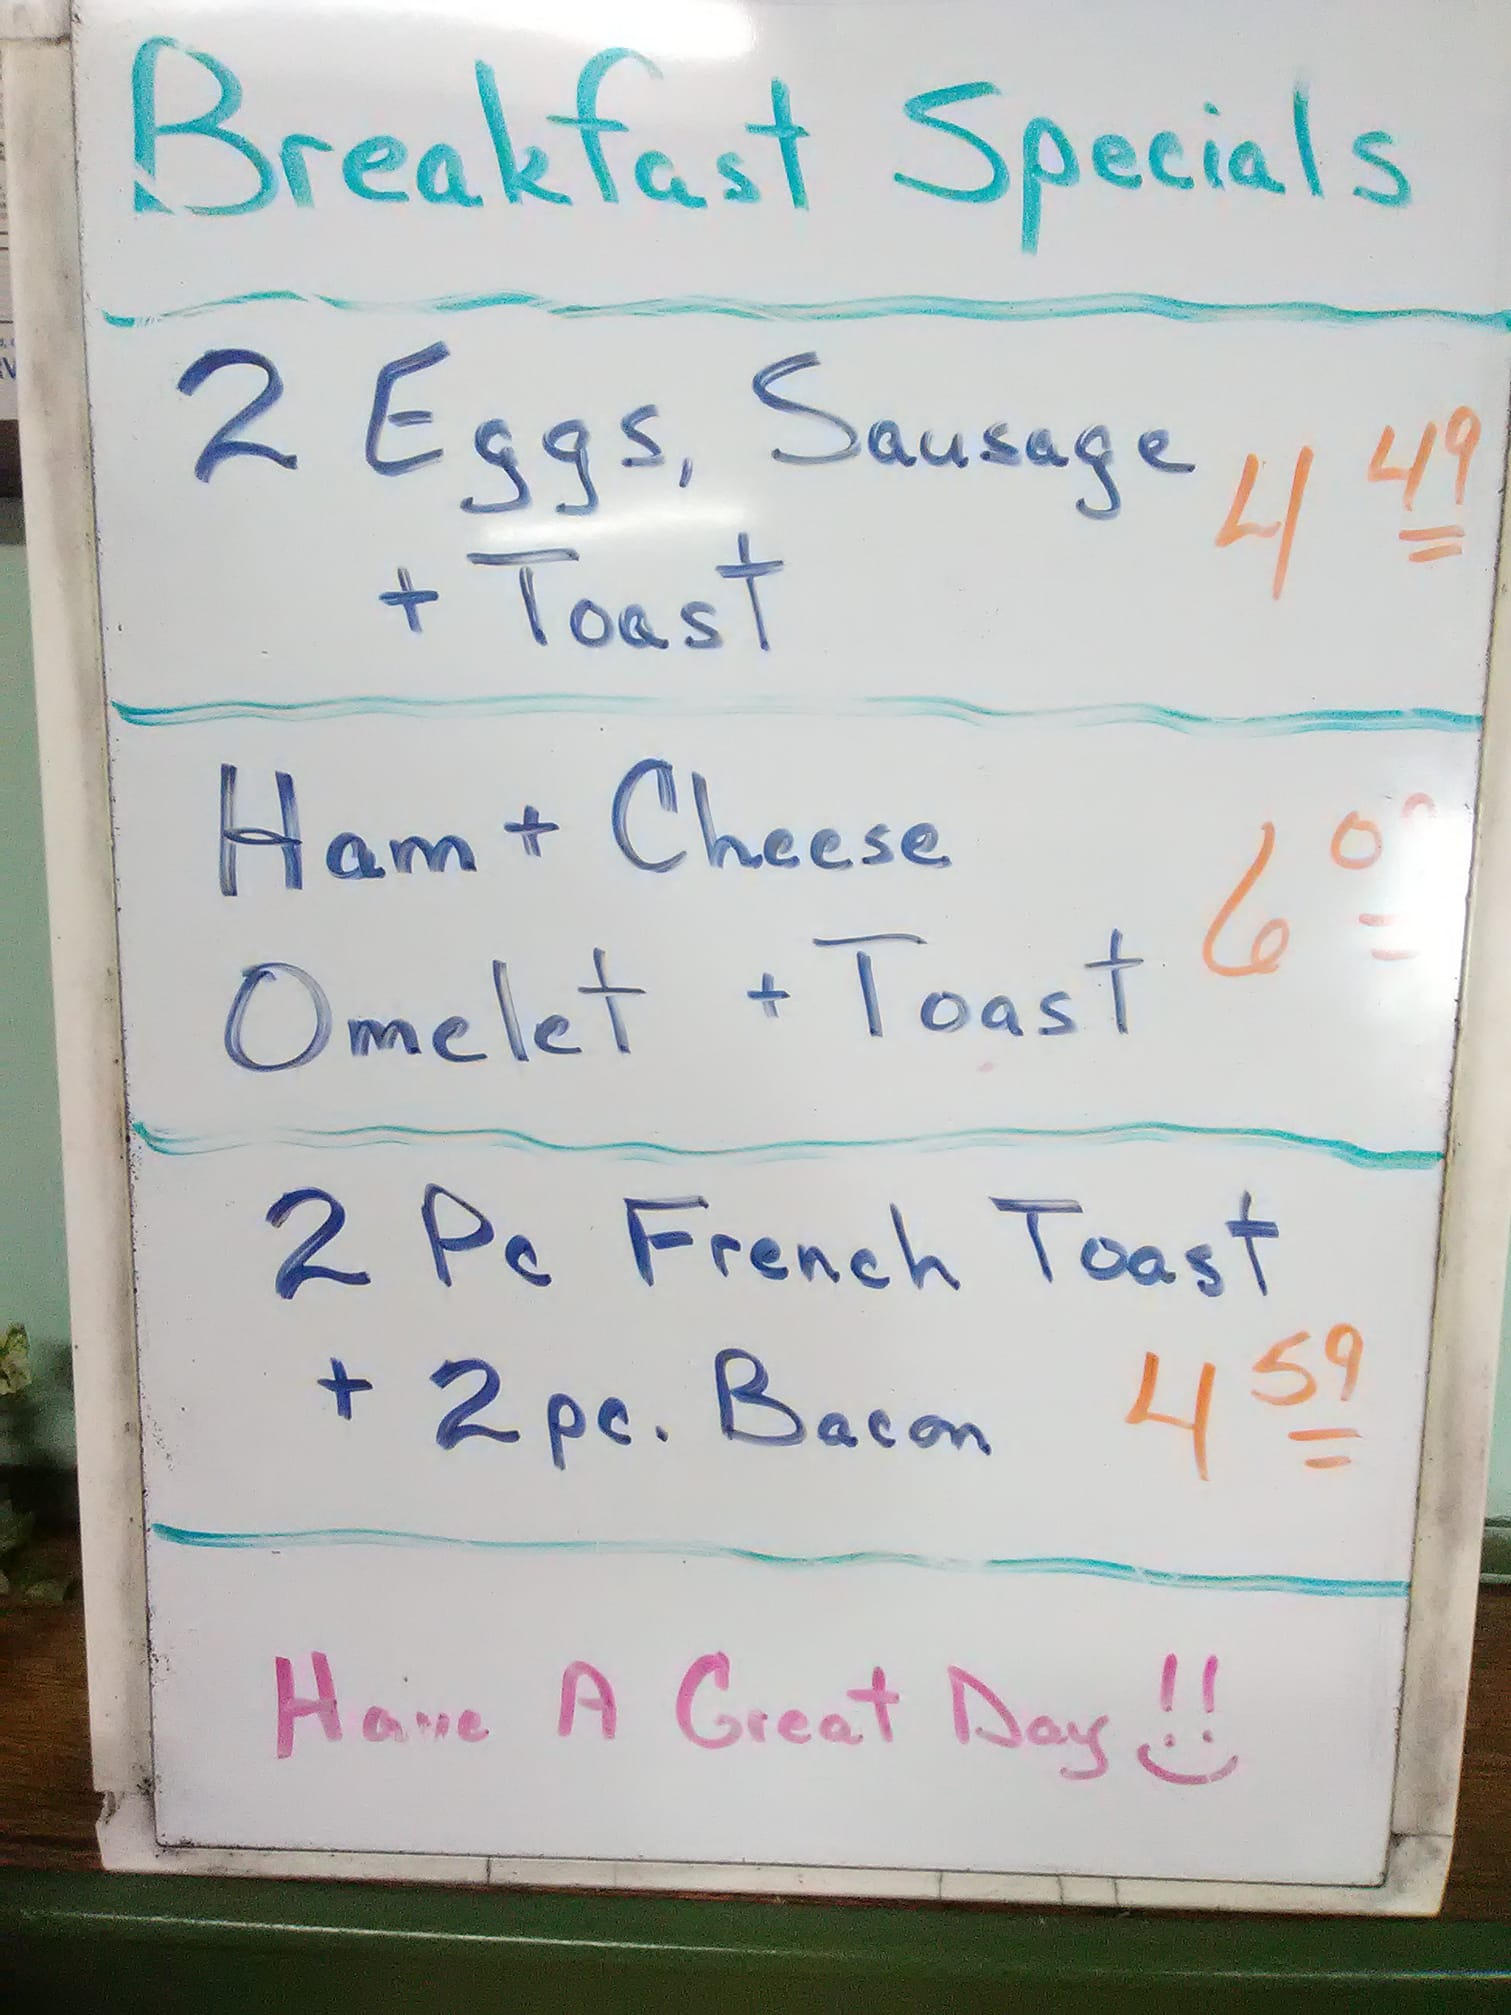 Breakfast Specials
2 Eggs, Sausage 4 49
+ Toast
Ham + Cheese
Omelet + Toast 6
2 Pc French Toast
+ 2 pc. Bacon 4 59
Have A Great Day!!